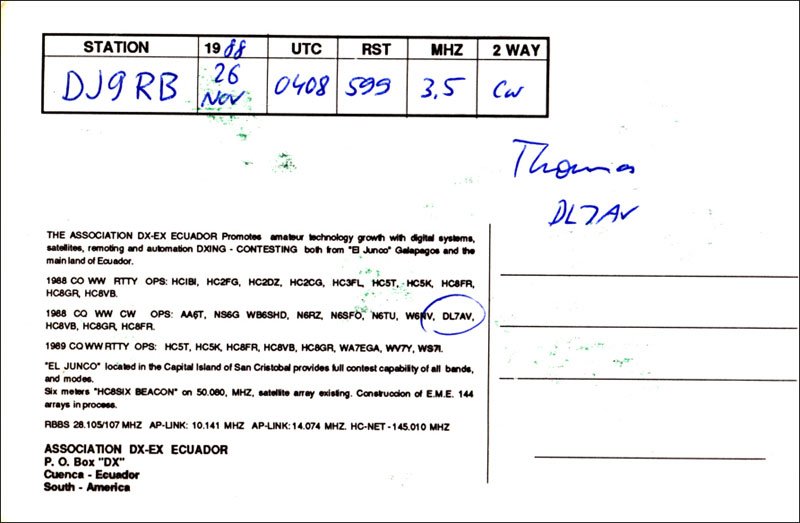 STATION 1988 UTC RST MHZ 2 WAY
DJ9RB 26 Nov 0408 599 3.5 CW
Thomas
DL7AV
THE ASSOCIATION DX-EX ECUADOR Promotes amateur technology growth with digital systems,
satellites, remoting and automation DXING - CONTESTING both from "El Junco" Galapagos and the
main land of Ecuador.
1988 CQ WW RTTY OPS: HCIBI, HC2FG, HC2DZ, HC2CG, HC3FL, HC5T, HC5K, HC8FR,
HC8GR, HC8VB.
1988 CQ WW CW OPS: AA6T, NS6G WB6SHD, N6RZ, N6SFO, N6TU, W6NV, DL7AV,
HC8VB, HC8GR, HC8FR.
1989 CQ WW RTTY OPS: HC5T, HC5K, HC8FR, HC8VB, HC8GR, WA7EGA, WV7Y, WS7I.
"EL JUNCO" located in the Capital Island of San Cristobal provides full contest capability of all bands,
and modes.
Six meters "HC8SIX BEACON" on 50.080, MHZ, satellite array existing. Construccion of E.M.E. 144
arrays in process.
RBBS 28.105/107 MHZ AP-LINK: 10.141 MHZ AP-LINK: 14.074 MHZ. HC-NET - 145.010 MHZ
ASSOCIATION DX-EX ECUADOR
P. O. Box "DX"
Cuenca - Ecuador
South - America